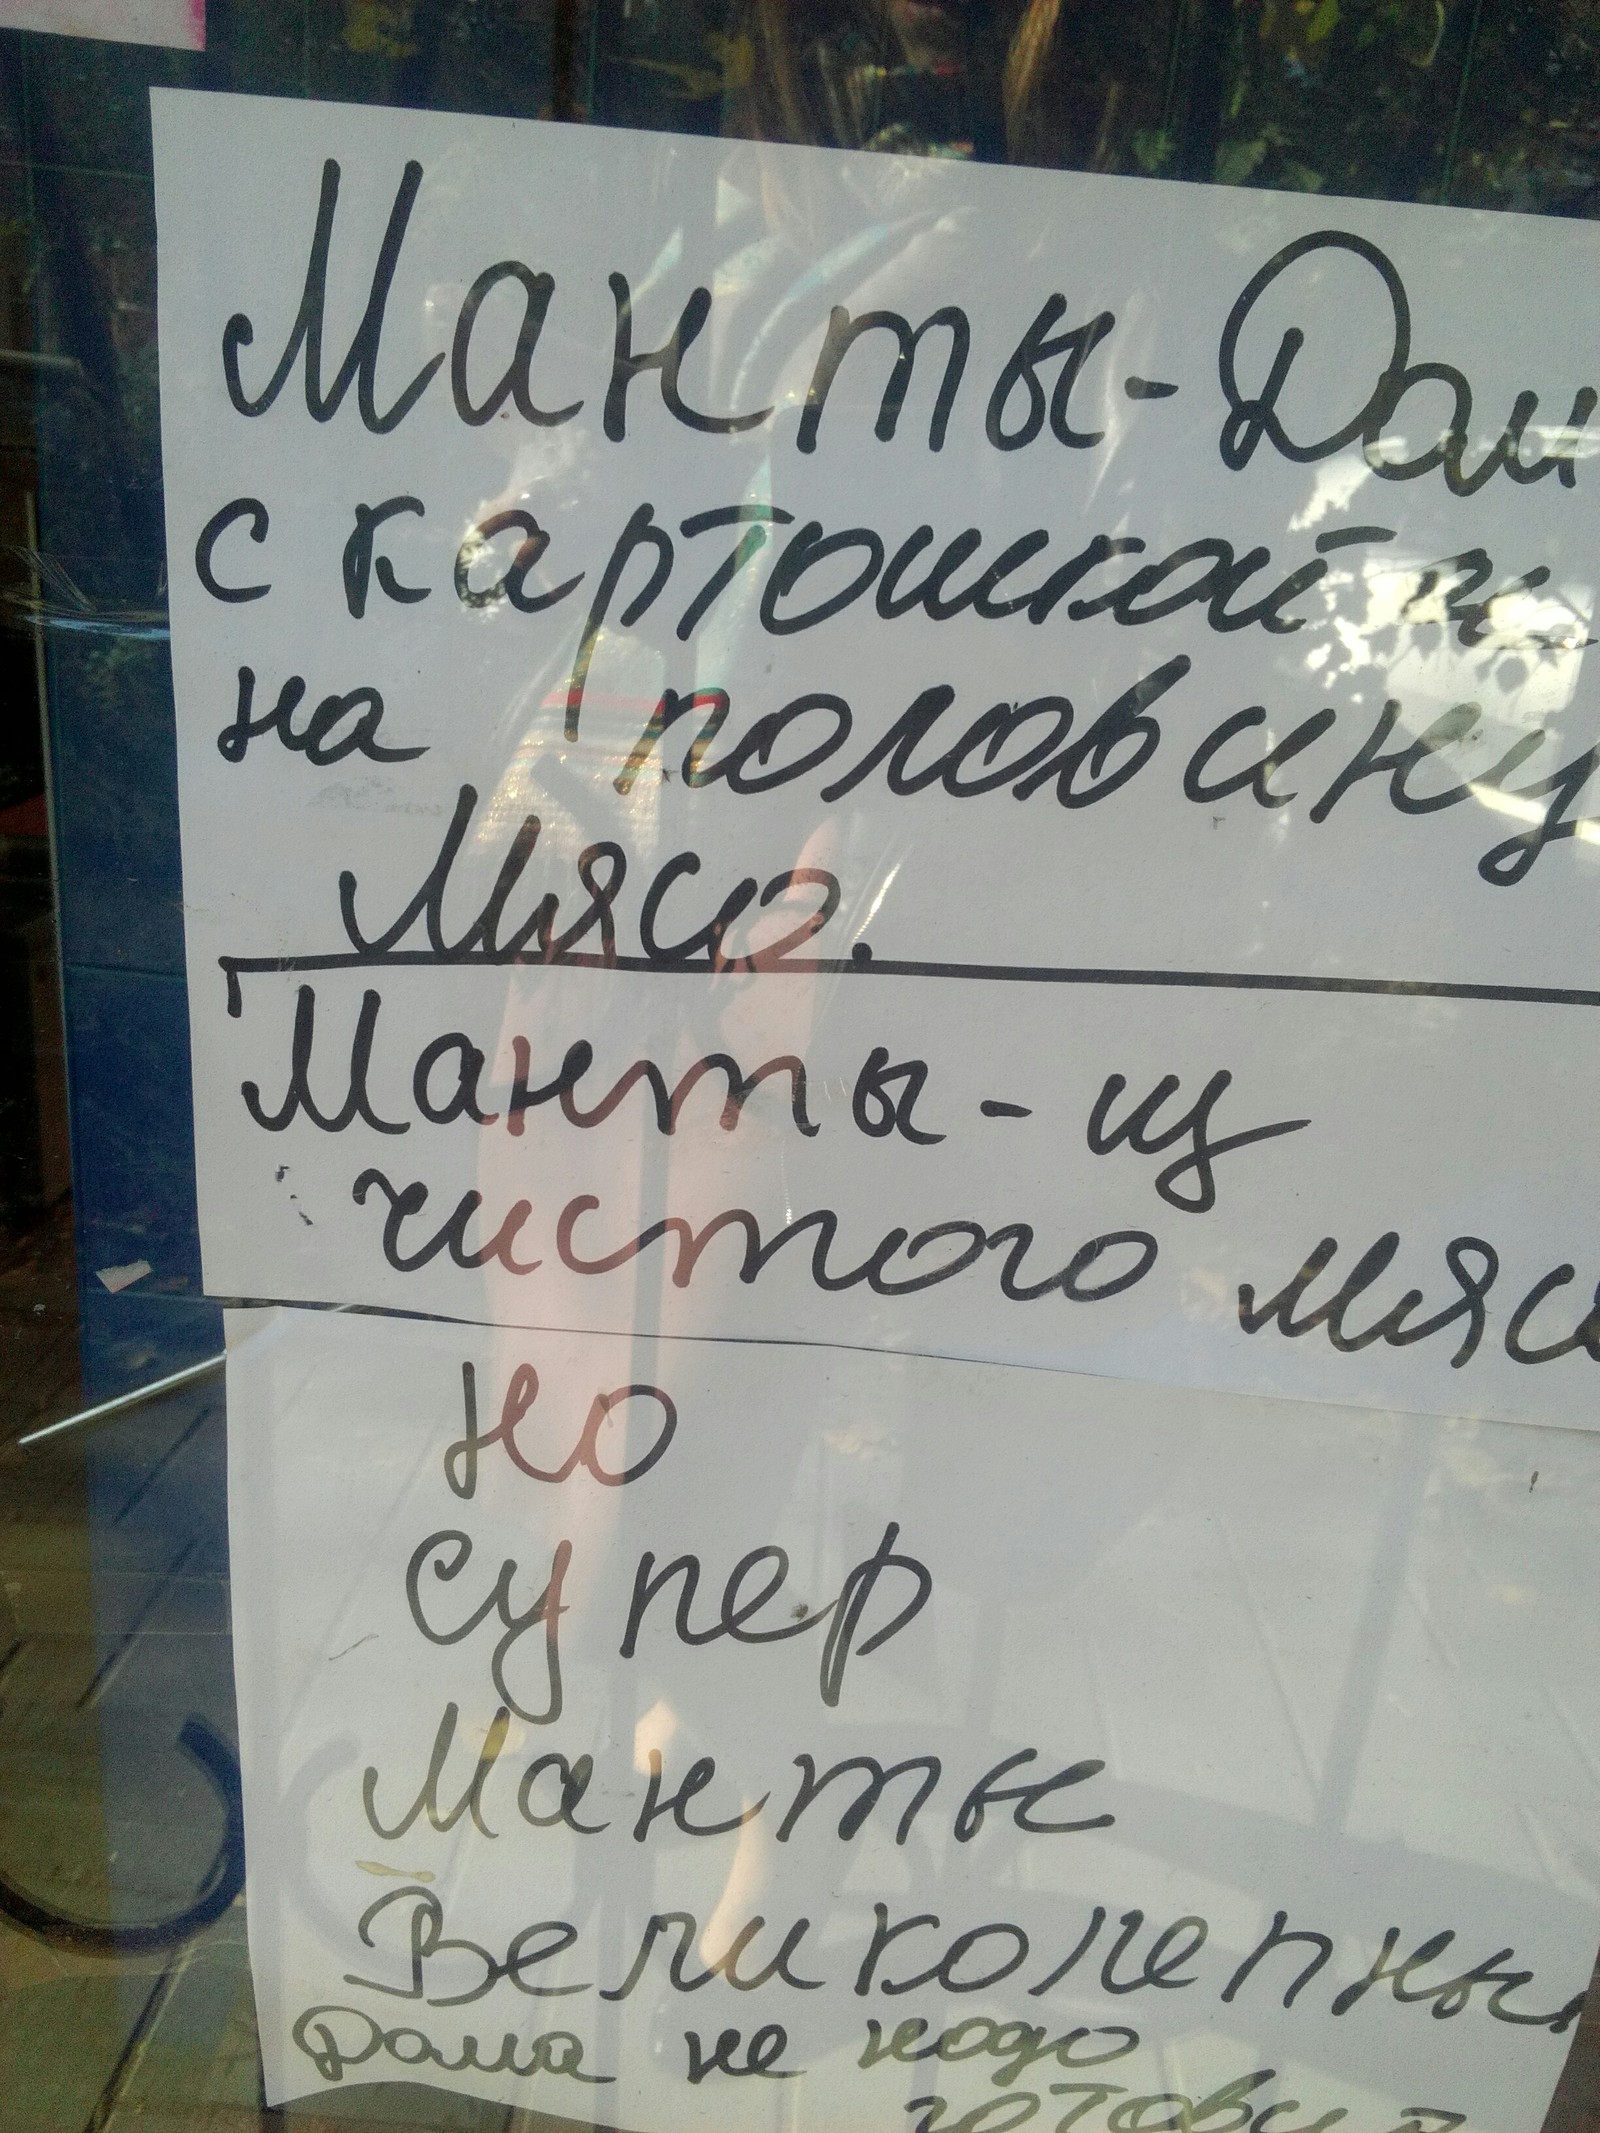 Манты-Дом
с картошкой и
на половину
мясо.
Манты-из
чистого мясо
но
супер
Манты
Великолепны
Дома не надо
готовит